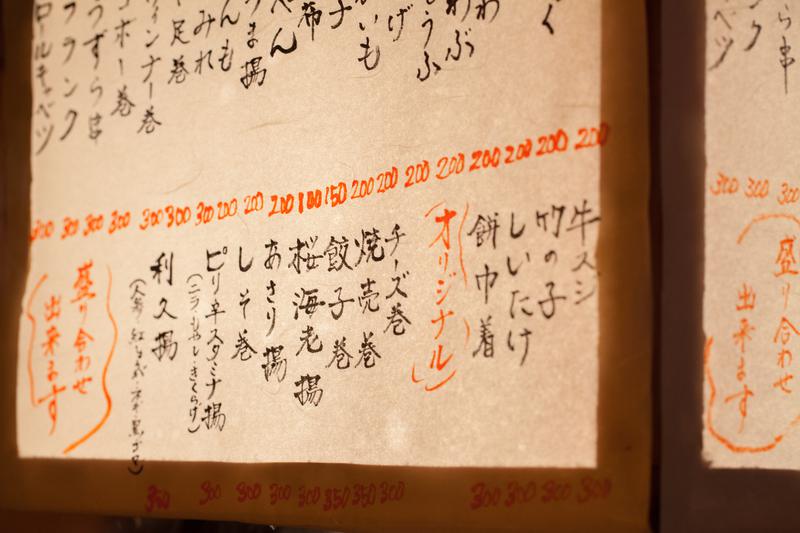 く
わ
わぶ
うふ
げ
いも
ナ
布
べん
うま揚
んも
みれ
足巻
ウィンナー巻
ゴボー巻
うずら串
フランク
ロールキャベツ
200
200
200
200
200
200
200
200
150
100
200
200
200
300
300
300
300
300
300
300
牛スジ
竹の子
しいたけ
餅巾着
(オリジナル)
チーズ巻
焼売巻
餃子巻
桜海老揚
あさり揚
しそ巻
ピリ辛スタミナ揚
(ニラもやしきくらげ)
利久揚
盛り合わせ
出来ます
300
300
300
300
300
350
350
300
300
300
300
350
ら串
ンク
ベツ
300
300
300
盛り合わせ
出来ます